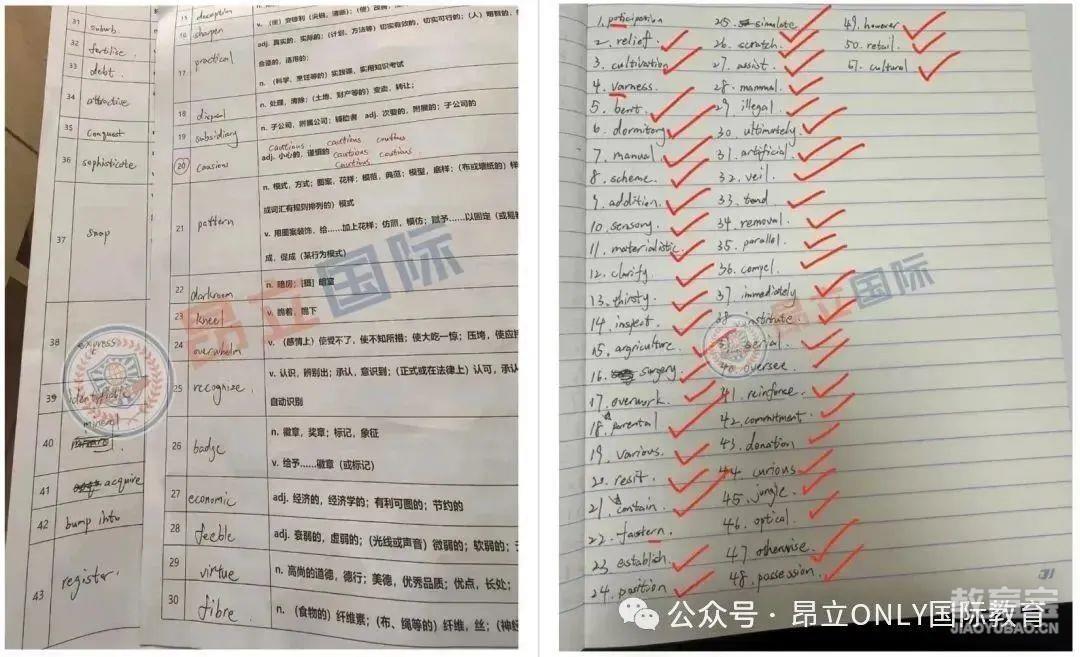 31
suburb.
32
fertilise.
33
debt.
34
attractive
35
Conquest
36
sophisticate
37
snap
38
express
39
identifiable
mineral
40
41
acquire
42
bump into
43
register.
deception
16
sharpen
17
practical
adj. 真实的，实际的；（计划、方法等）切实有效的，切实可行的；（人）
合适的，适用的；
n.（科学、烹饪等的）实践课，实用知识考试
18
disposal
n. 处理，清除；（土地、财产等的）变卖，转让；
19
subsidiary
n. 子公司，附属公司；辅助者 adj. 次要的，附属的；子公司的
20
causious
cautious cautious cautious
adj. 小心的，谨慎的 cautious cautious.
cautious.
21
pattern
n. 模式，方式；图案，花样；模范，典范；模型，底样；（布或墙纸的）样
或词汇有规则排列的）模式
v. 用图案装饰，给……加上花样；仿照，模仿；赋予……以固定（或易
成，促成（某行为模式）
22
darkroom
n. 暗房；[摄] 暗室
23
kneel
v. 跪着，跪下
24
overwhelm
v.（感情上）使受不了，使不知所措；使大吃一惊；压垮，使应
25
recognize.
v. 认识，辨别出；承认，意识到；（正式或在法律上）认可，承认
自动识别
26
badge
n. 徽章，奖章；标记，象征
v. 给予……徽章（或标记）
27
economic
adj. 经济的，经济学的；有利可图的；节约的
28
feeble
adj. 衰弱的，虚弱的；（光线或声音）微弱的；软弱的；
29
virtue
n. 高尚的道德，德行；美德，优秀品质；优点，长处；
30
fibre
n.（食物的）纤维素；（布、绳等的）纤维，丝；（神经
昂立国际
1. poticipasion
2. relief.
3. cultivation
4. varness.
5. berit.
6. dormitory
7. manual.
8. scheme.
9. addition.
10. sensory.
11. materialistic.
12. clarify.
13. thirsty.
14. inspect.
15. argriculture.
16. surgery.
17. overwork.
18. parental
19. various.
20. resit.
21. contain.
22. fastern.
23. establish.
24. position
25. simulate
26. scratch.
27. assist.
28. mammal.
29. illegal.
30. ultimately.
31. artificial
32. veil.
33. tend.
34. removal.
35. parallel.
36. compel.
37. immediately
38. institute
39. serial.
40. oversee.
41. reinforce.
42. commitment.
43. donation
44. curious
45. jungle.
46. optical.
47. otherwise
48. possession.
49. however
50. retail.
51. cultural
昂立国际
公众号 · 昂立ONLY国际教育
教育宝
JIAOYUBAO.CN